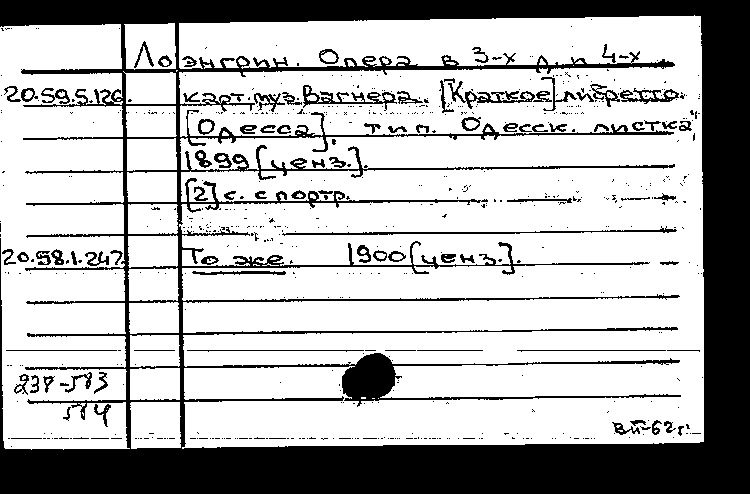 Лоэнгрин. Опера в 3-х д. и 4-х
20.59.5.126. карт. муз. Вагнера. [Краткое] либретто.
[Одесса], тип. „Одесск. листка",
1899 [ценз.].
[2] с. с портр.
20.58.1.247. То же. 1900 [ценз.].
237-583
584